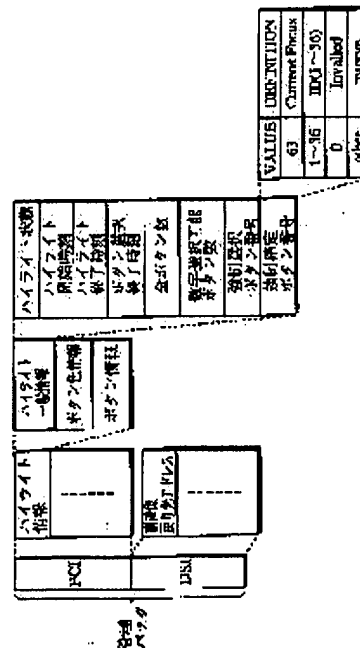 PCI
DSI
ハイライト
情報
ハイライト
一般情報
ボタン色情報
ボタン情報
ハイライト状態
ハイライト
開始時刻
ハイライト
終了時刻
ボタン選択
終了時刻
全ボタン数
数字選択可能
ボタン数
強制選択
ボタン番号
強制確定
ボタン番号
VALUE DEFINITION
63 Current Focus
1~36 ID(1~36)
0 Invalied
other